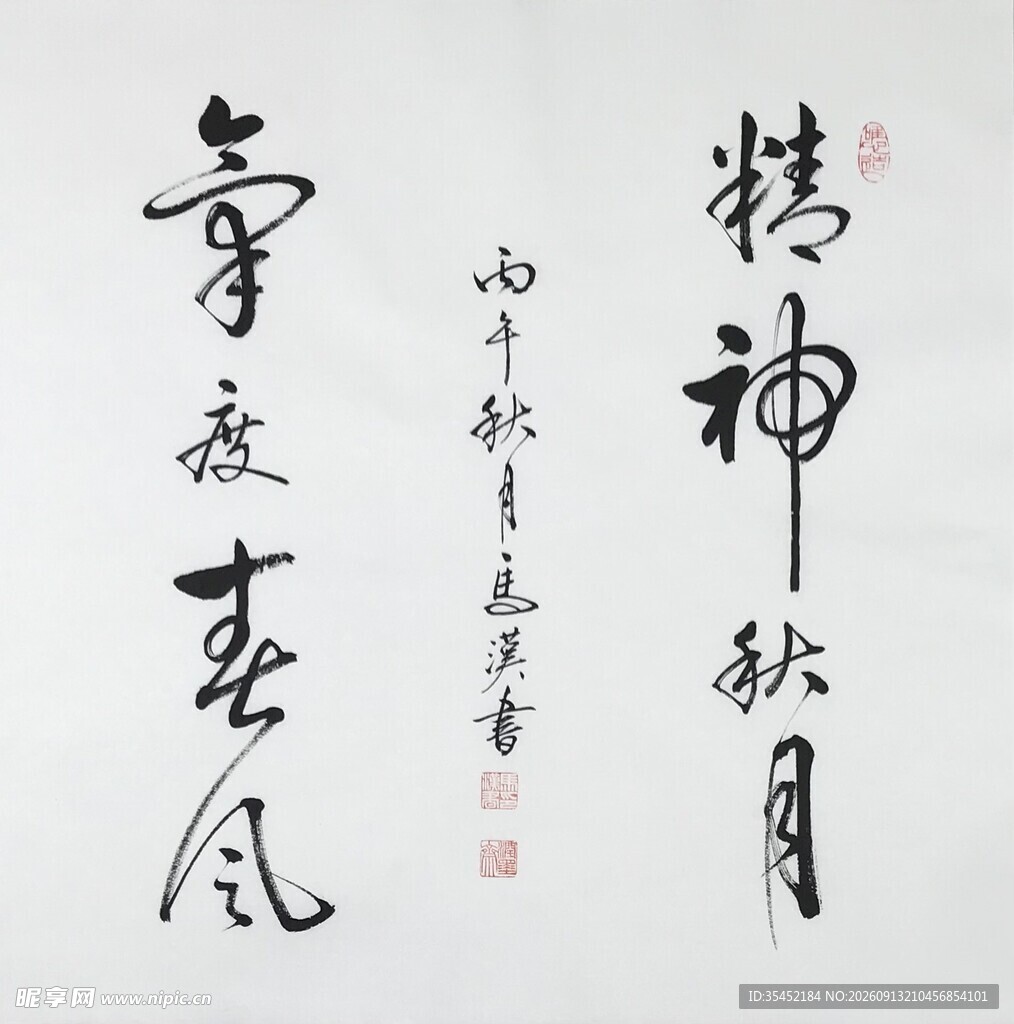 精神秋月
丙午秋月馬漢書
氣度春风
昵享网 www.nipic.cn
ID:35452184 NO:20260913210456854101